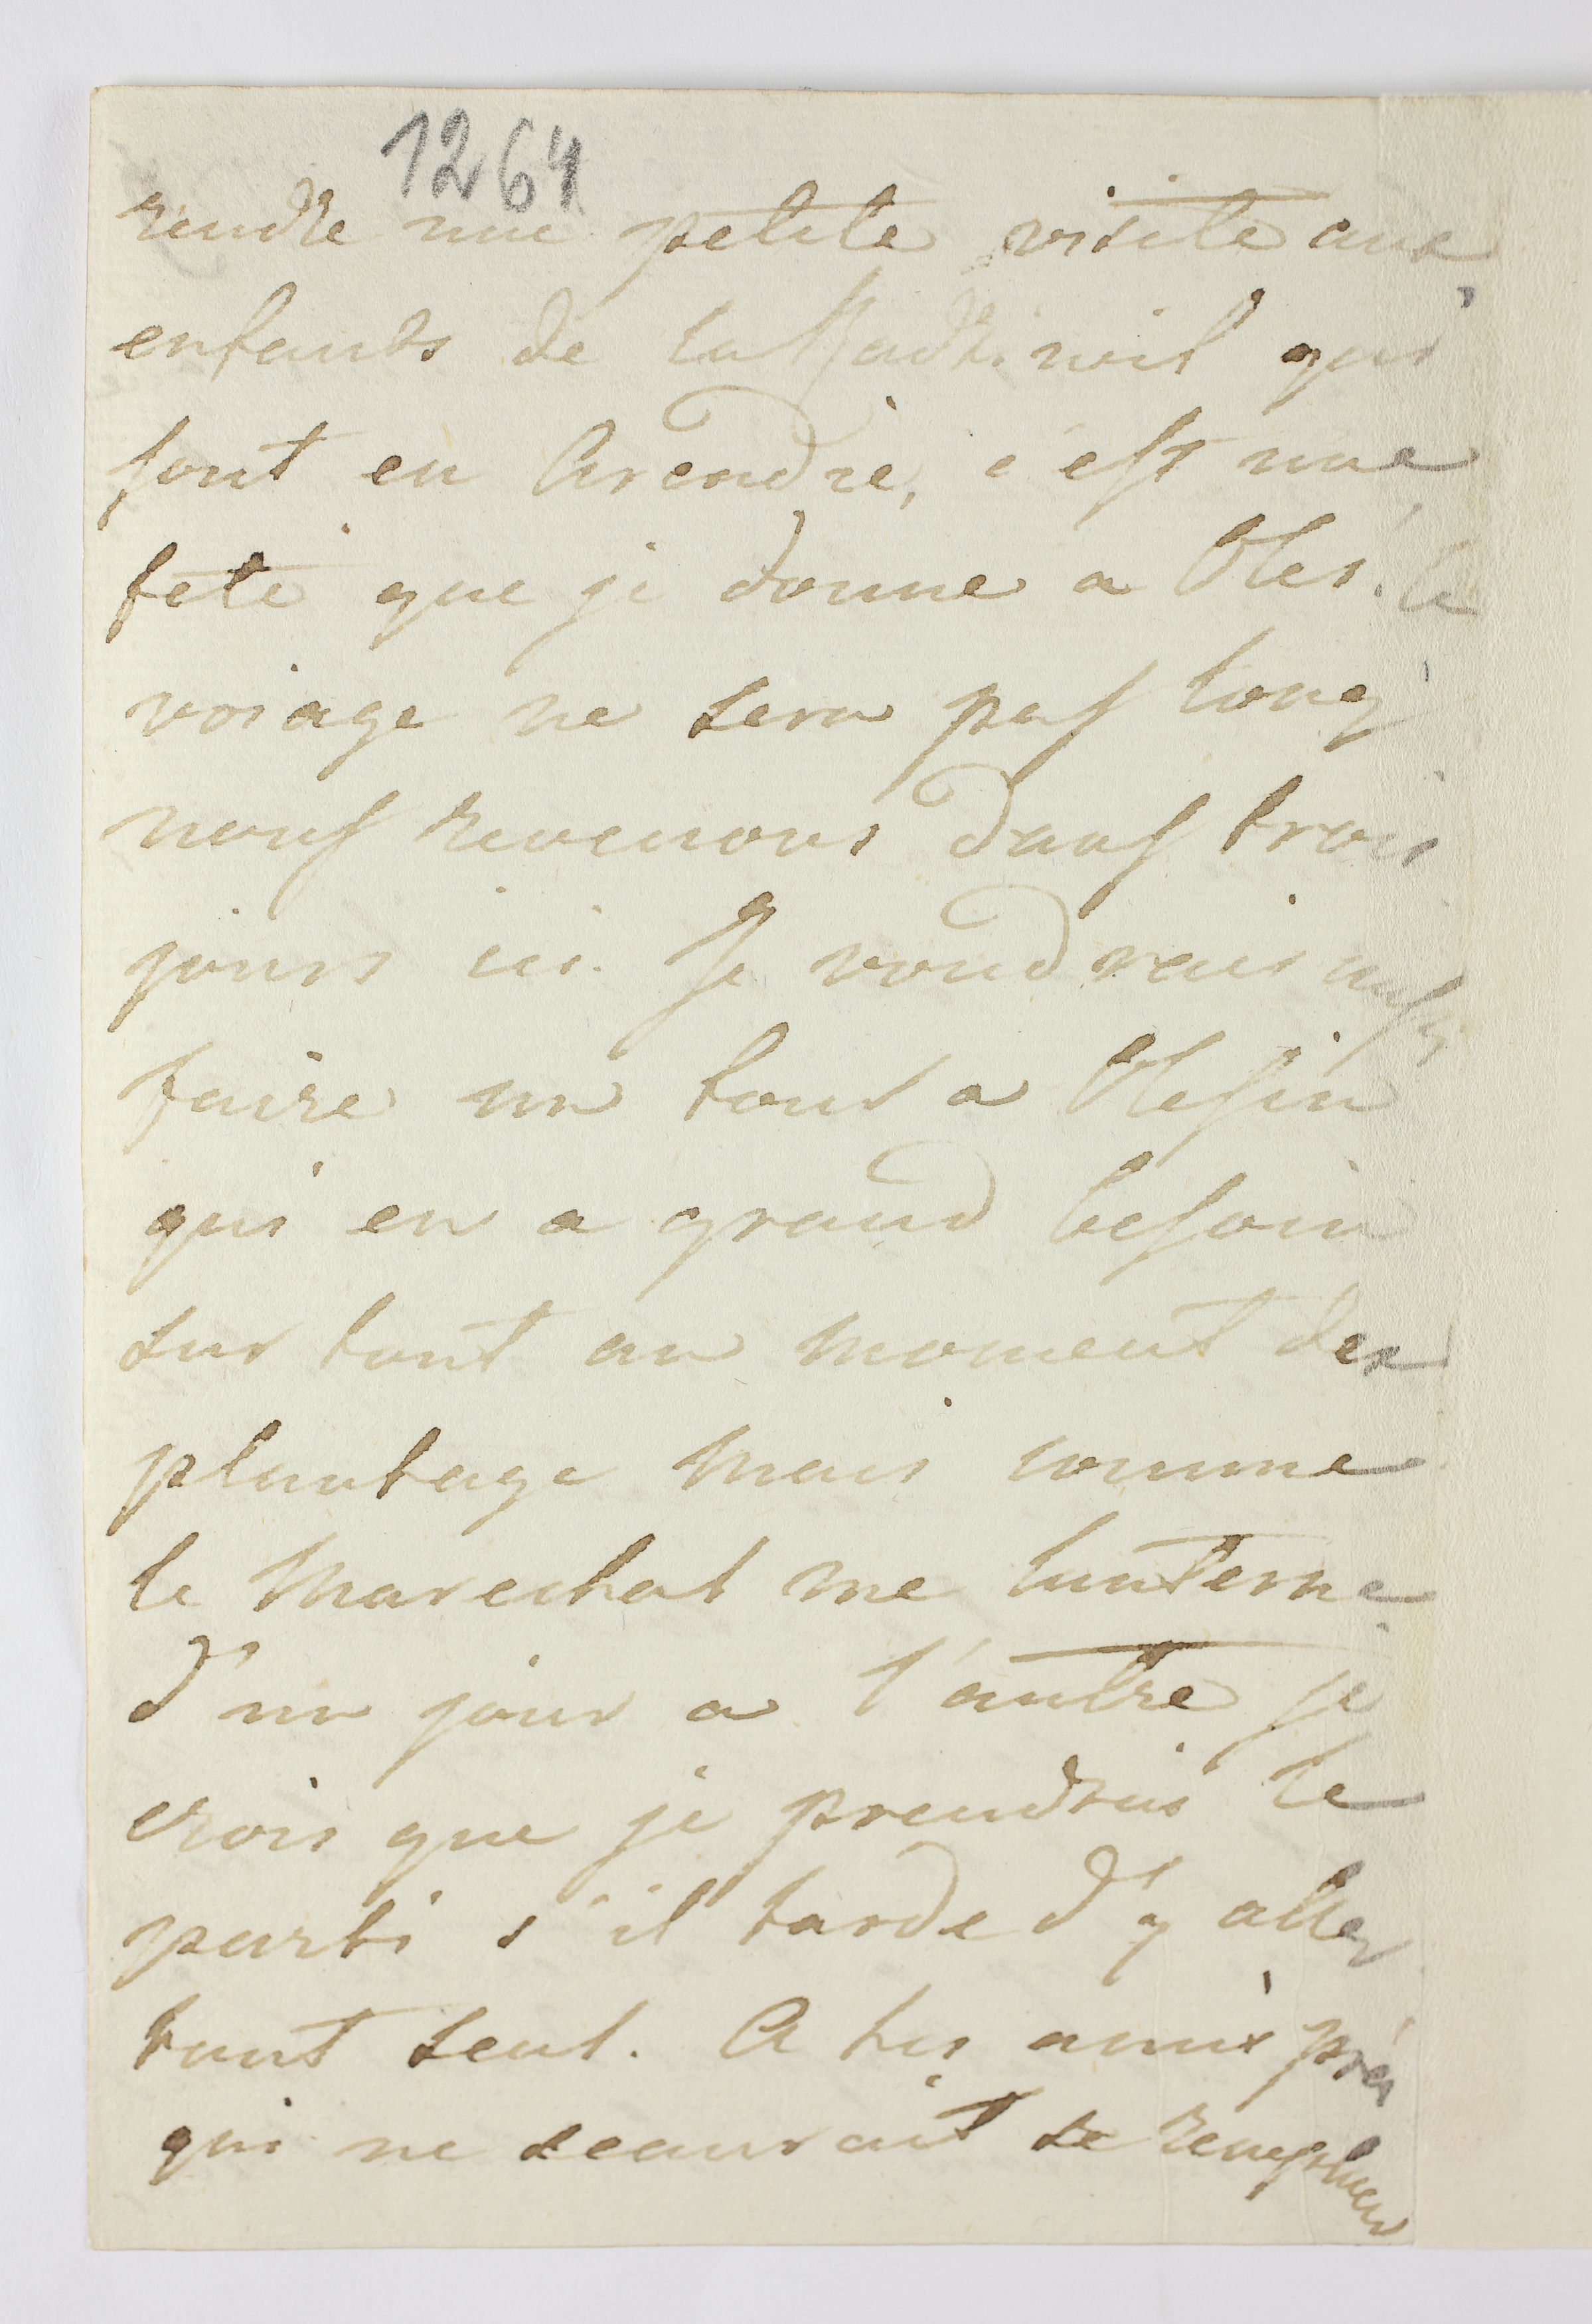 1264
rendre une petite visite aux
enfants de la Radzivil qui
sont en Arendje, c'est une
fete que je donne a Oles. le
voiage ne sera pas long
nous revenons dans trois
jours ici. Je voudrais aussi
faire un tour a Olesin
qui en a grand besoin
sur tout au moment des
plantage mais comme
le Marechal me lanterne
d'un jour a l'autre je
crois que je prendrais le
parti s'il tarde d'y aller
tout seul. A tes amis près
qui ne scaurait se remplacer